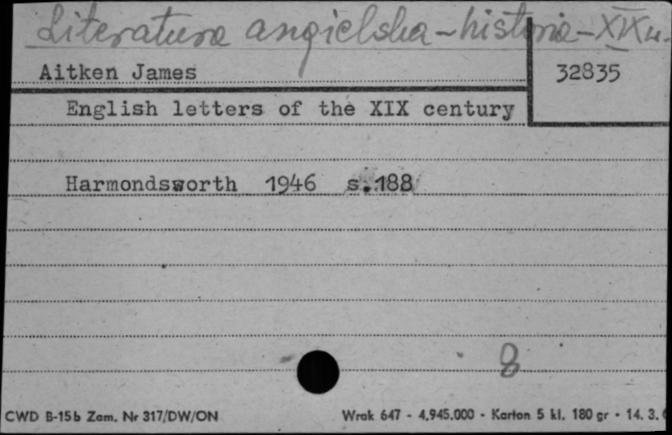 Literatura angielska - historia - XIX w.
Aitken James
32835
English letters of the XIX century
Harmondsworth 1946 s.188
8
CWD B-15b Zam. Nr 317/DW/ON
Wrak 647 - 4.945.000 - Karton 5 kl. 180 gr - 14. 3.